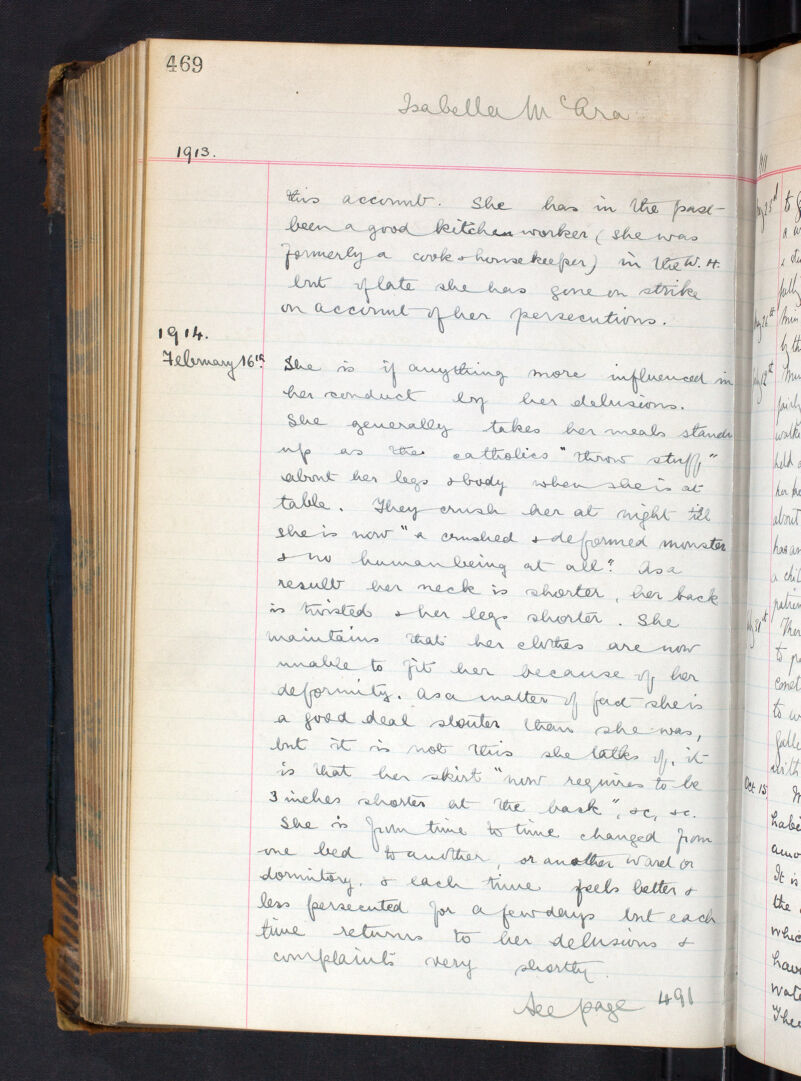 469
Isabella McAra
1913.
this account. She has in the past
been a good kitchen worker (she was
formerly a cook & housekeeper) in the W. H.
but of late she has gone on strike
on account of her persecutions.
1914.
February 16th.
She is if anything more influenced in
her conduct by her delusions.
She generally takes her meals standg
up as the catholics "throw stuff"
about her legs & body when she is at
table. They crush her at night till
she is now "a crushed & deformed monster
& no human being at all". As a
result her neck is shorter, her back
is twisted & her legs shorter. She
maintains that her clothes are now
unable to fit her because of her
deformity. As a matter of fact she is
a good deal stouter than she was,
but it is not this she talks of, it
is that her skirt "now requires to be
3 inches shorter at the back", &c, &c.
She is from time to time changed from
one bed to another, or another ward or
dormitory, & each time feels better &
less persecuted for a few days but each
time returns to her delusions &
complaints very shortly.
See page 491
Oct 15